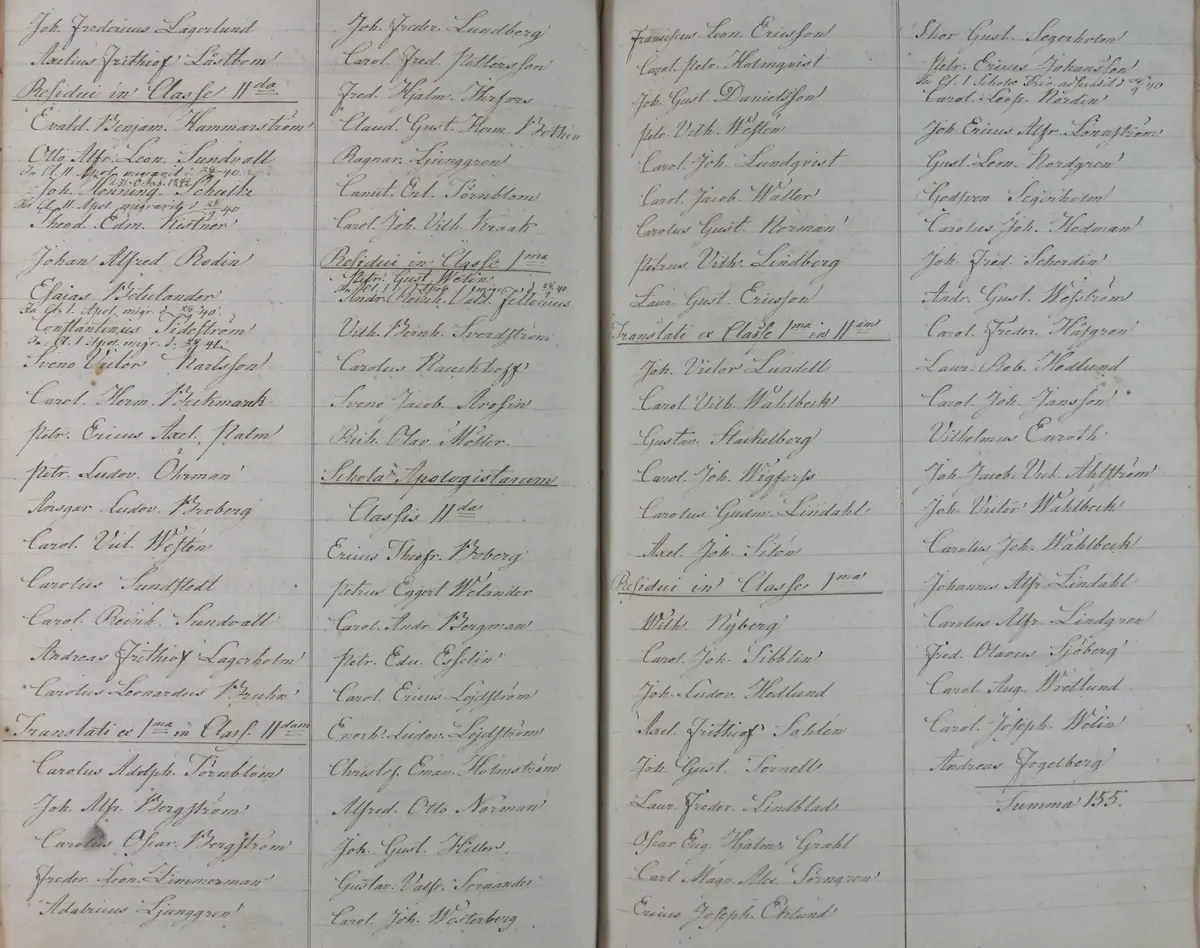 Joh. Fredericus Lagerlund
Axelius Frithiof Låstbom
Residui in Classe II da
Evald. Benjam. Hammarström
Otto Alfr. Leon. Sundvall
In Cl. II Apolo migravit 28/9 40.
Joh. Henning. Schultz
In Cl. II Apol. migravit 28/9 40
Theod. Edm. Kistner
Johan Alfred Rodin
Esaias Betulander
In Cl. 1. Apol. migr. d. 28/9 40.
Constantinus Sideström
In Cl. 1 Apol. migr. d.
Sveno Victor Karlsson
Carol. Herm. Beckmarck
Petr. Ericus Axel. Palm
Petr. Ludov. Öhrman
Ansgar Ludov. Broberg
Carol. Vict. Westen
Carolus Sundstedt
Carol. Reinh. Sundvall
Andreas Frithiof Lagerholm
Carolus Leonardus Bruhn
Translati ex I ma in Class. II dam
Carolus Adolph. Törnblom
Joh. Alfr. Bergström
Carolus Oscar. Bergström
Freder. Leon. Zimmerman
Adalricus Ljunggren
Joh. Freder. Lundberg
Carol. Fred. Pettersson
Fred. Hjalm. Thrfors
Claud. Gust. Herm. Brothen
Ragnar Ljunggren
Canut. Erl. Törnblom
Carol. Joh. Vilh. Kraak
Residui in Classe I ma
Petr. Gust. Welin
In Cl. 1 Apol. migr. 28/9 40.
Andr. Reinh. Vald. Fellenius
Vilh. Bernh. Sverdström
Carolus Rauckhoff
Sveno Jacob. Arosin
Rich. Olav. Möller.
Schola Apologistarum
Classis II da
Ericus Theofr. Broberg
Petrus Eggert Welander
Carol. Andr. Bergman
Petr. Edv. Esselin
Carol. Ericus Löjdström
Enoch. Ludov. Löjdström
Christof. Eman. Holmström
Alfred. Otto Norman
Joh. Gust. Hiller.
Gustav. Valfr. Sernander
Carol. Joh. Westerberg
Franciscus Leon. Ericsson
Carol. Petr. Holmqvist
Joh. Gust. Danielsson
Petr. Vilh. Westen
Carol. Joh. Lundqvist
Carol. Jacob. Waller
Carolus Gust. Norman
Petrus Vilh. Lindberg
Laur. Gust. Ericsson
Translati ex Classe I ma in II am
Joh. Victor Lundell
Carol. Vilh. Wahlbeck
Gustav. Stackelberg
Carol. Joh. Wigforss
Carolus Gudov. Lindahl
Axel. Joh. Silén
Residui in Classe I ma
Wilh. Nyberg
Carol. Joh. Sibblin
Joh. Ludov. Hedlund
Axel. Frithiof Sahlén
Joh. Gust. Tornell
Laur. Freder. Lindblad
Oscar Eug. Hjalmar Grahl
Carl Magn. Alex. Törngren
Ericus Joseph. Eklund
Thor Gust. Segerholm
Petr. Ericus Johansson
In Cl. 1 Schola 28/9 40
Carol. Leop. Norden
Joh. Ericus Alfr. Lönnström
Gust. Leon. Nordgren
Godsven Segerholm
Carolus Joh. Hedman
Joh. Fred. Scherdin
Andr. Gust. Wesström
Carol. Freder. Häfgren
Laur. Rob. Hedlund
Carol. Joh. Jansson
Vilhelmus Enroth
Joh. Jacob. Vict. Ahlström
Joh. Victor Wahlbeck
Carolus Joh. Wahlbeck
Johannes Alfr. Lindahl
Carolus Alfr. Lindgren
Fred. Olavus Sjöberg
Carol. Aug. Wretlund
Carol. Joseph. Welin
Andreas Fogelberg
Summa 155.